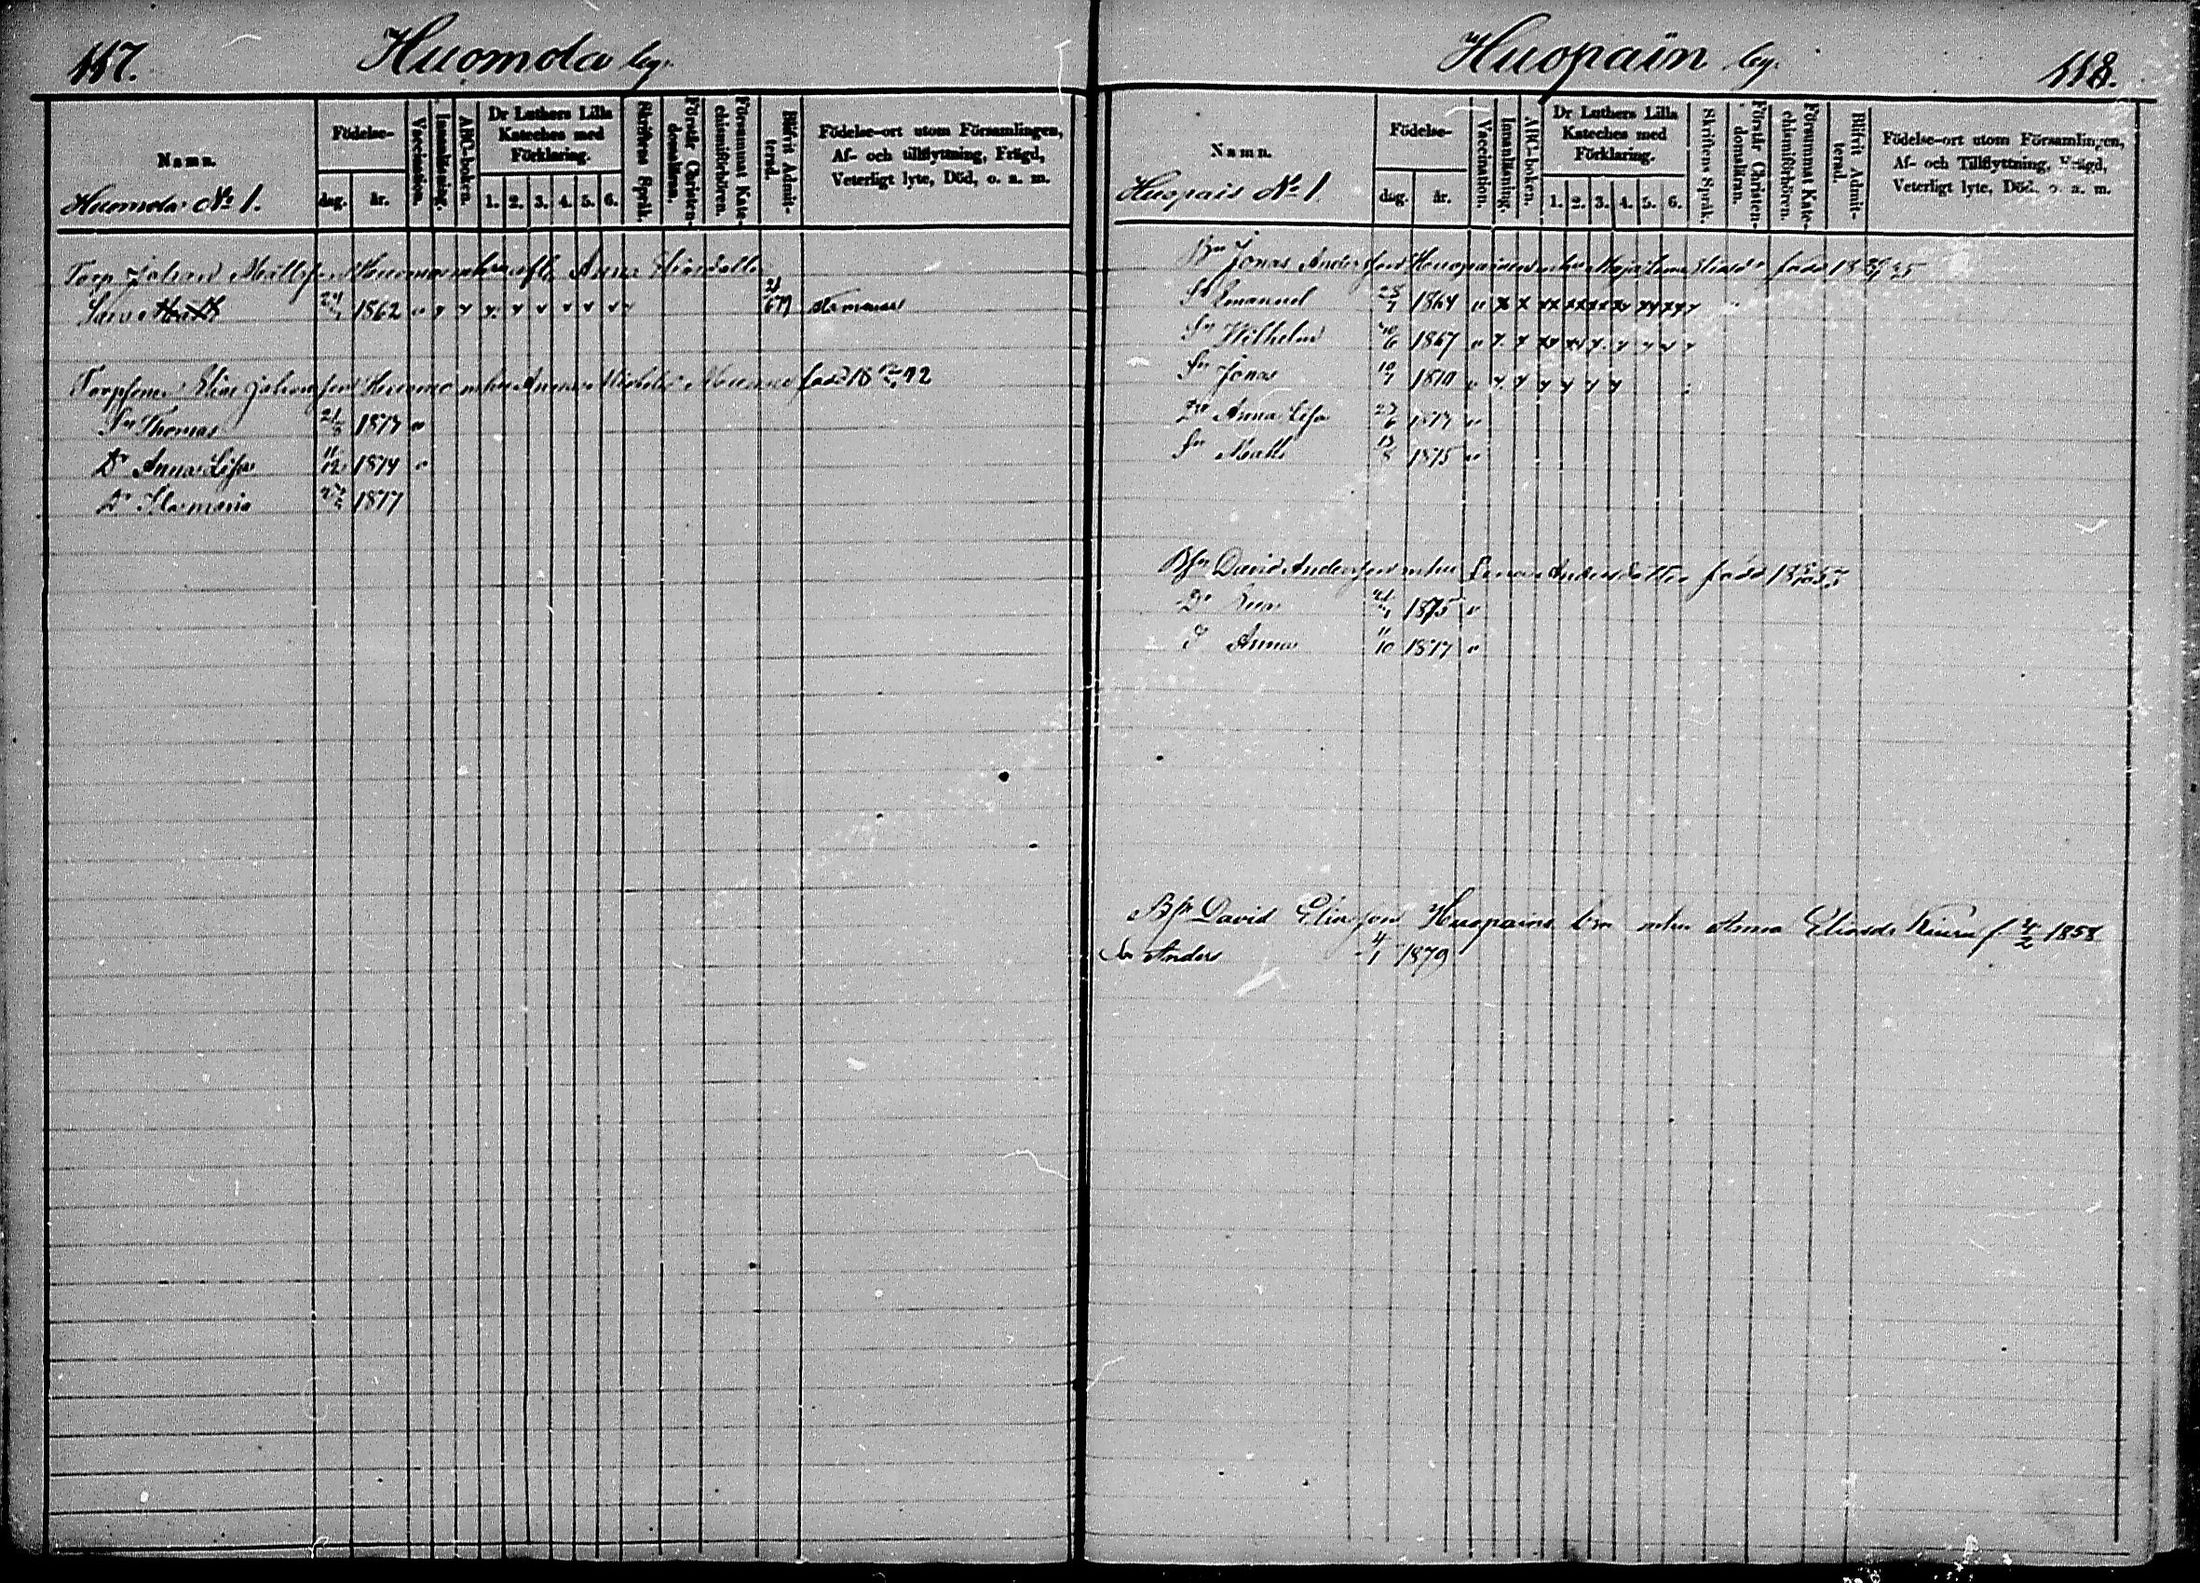 117.
Huomola by.
Namn.
Huomola No 1.
Födelse-
dag.
år.
Vaccination.
Innanläsning.
ABC-boken.
Dr Luthers Lilla Kateches med Förklaring.
1. 2. 3. 4. 5. 6.
Skriftens Språk.
Förstår Christendomsläran.
Försummat Katechismiförhören.
Blifvit Admitterad.
Födelse-ort utom Församlingen,
Af- och tillflyttning, Frägd,
Veterligt lyte, Död, o. s. m.
Torp Johan Matts son Anna
1862
Elias Johans son Huomo mhu Anna född 18 42
Sn Thomas 1873
Dr Anna Lisa 11/12 1874
Dr 1877
Huopain by.
118.
Namn.
Huopais No 1.
Födelse-
dag.
år.
Vaccination.
Innanläsning.
ABC-boken.
Dr Luthers Lilla Kateches med Förklaring.
1. 2. 3. 4. 5. 6.
Skriftens Språk.
Förstår Christendomsläran.
Försummat Katechismiförhören.
Blifvit Admitterad.
Födelse-ort utom Församlingen,
Af- och Tillflyttning, Frägd,
Veterligt lyte, Död, o. s. m.
Jonas Anders son Huopainen mhu Maja Lena född
Sn Emanuel 1864
Sn Wilhelm 1867
Sn Jonas
Dr Anna Lisa
Sn Matts 13/8 1875
Bsn David Anders son mhu Lena Andersdotter född
Dr 1875
D Anna 11/10 1877
Bsn David Elias son Huopaine mhu Anna Eliasd. Kiuru f. 1858
Sn Anders 4/1 1879